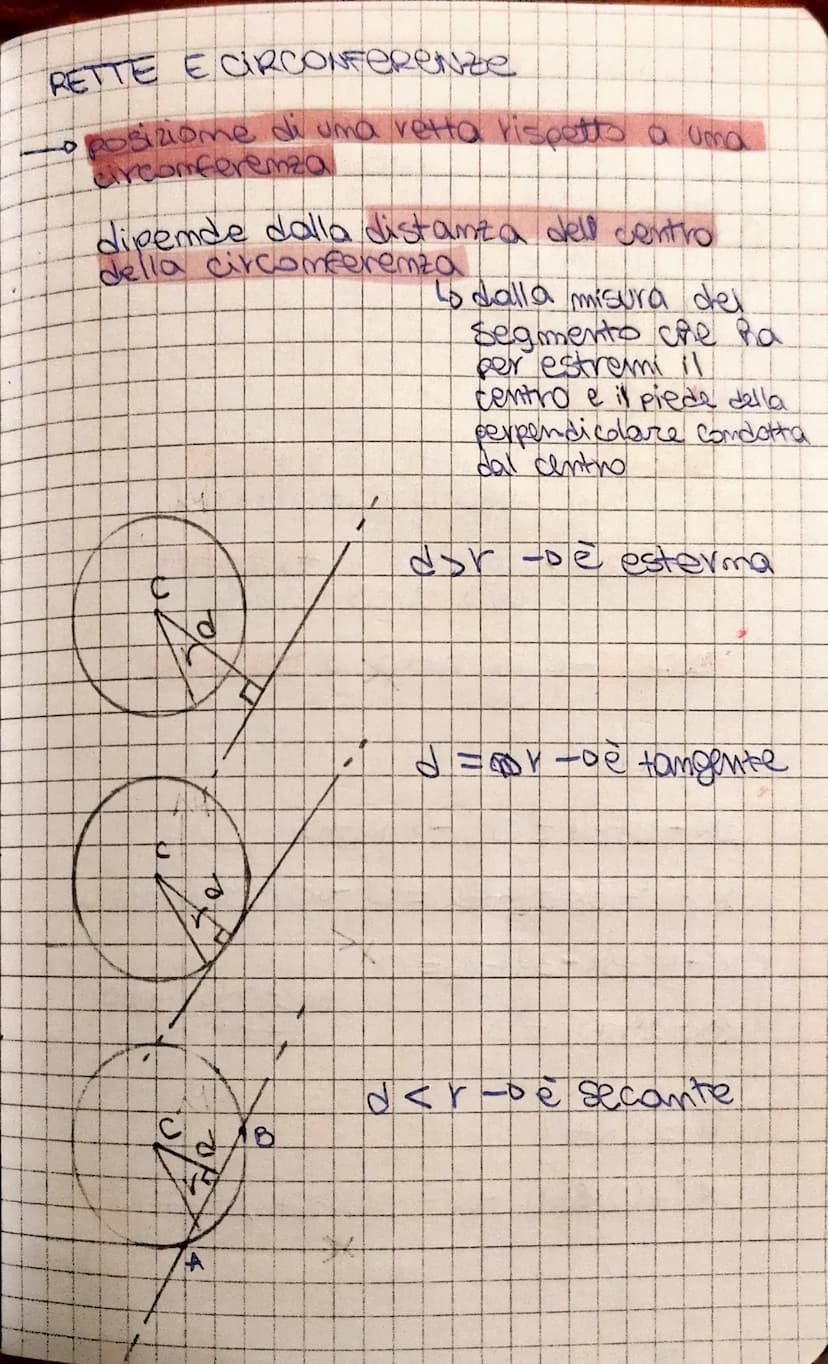 RETTE E CIRCONFERENZE
→ posizione di una retta rispetto a una
circonferenza
dipende dalla distanza dell centro
della circonferenza
↳ dalla misura del
segmento che ha
per estremi il
centro e il piede della
perpendicolare condotta
dal centro
C
d
r
d>r → è esterna
d = r → è tangente
C
d
r
d < r → è secante
C
d
r
B
A